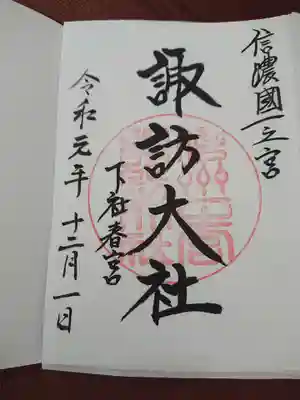 信濃國一之宮
諏訪大社
下社春宮
令和元年十二月一日